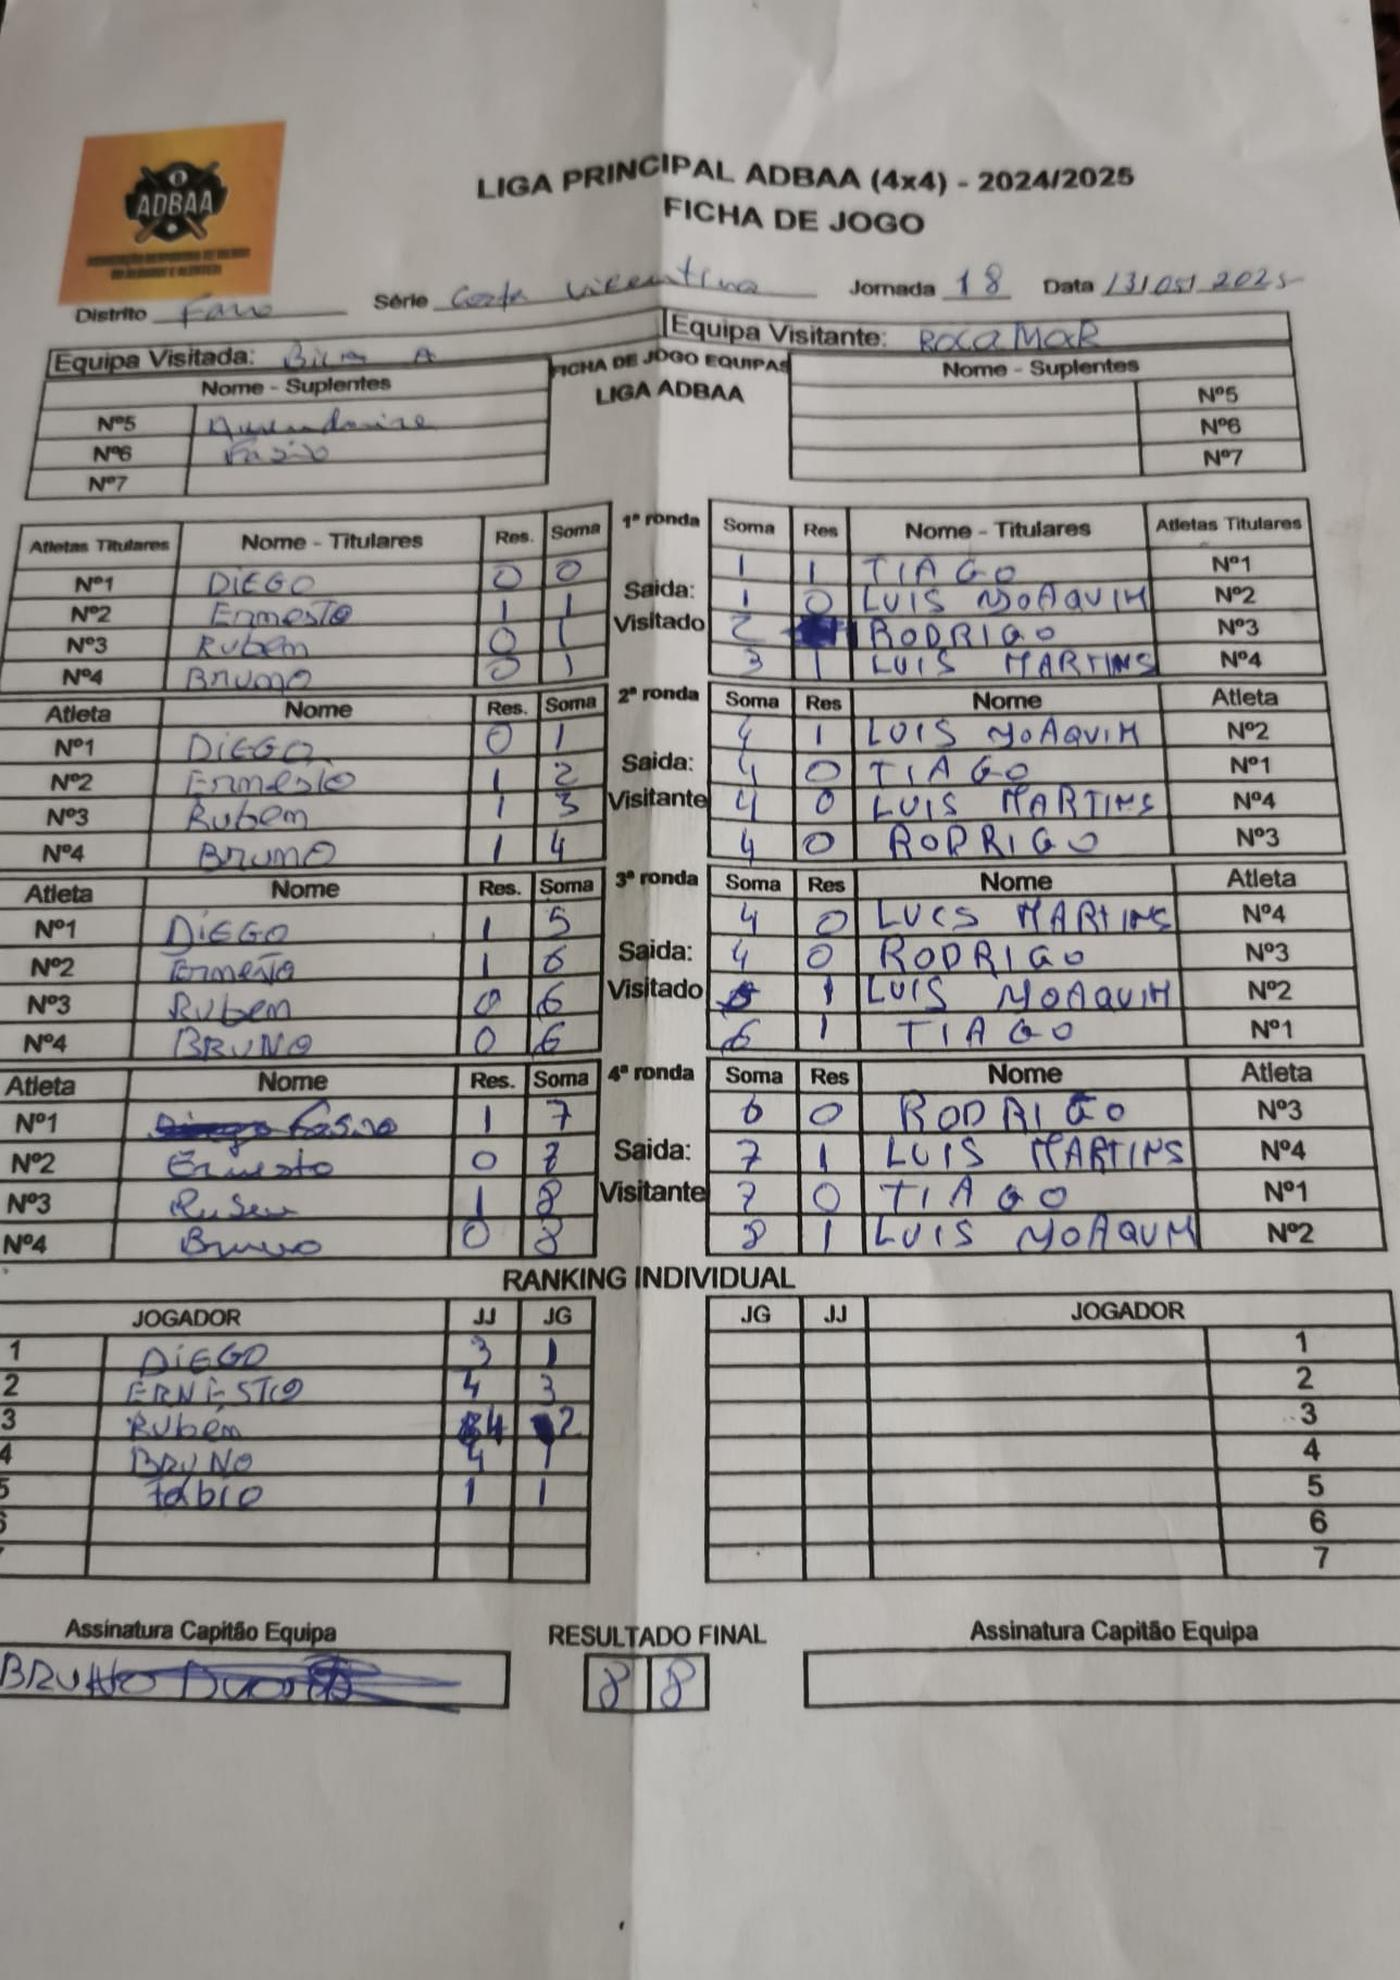 ADBAA
LIGA PRINCIPAL ADBAA (4x4) - 2024/2025
FICHA DE JOGO
Distrito Faro Série Costa Vicentina Jornada 18 Data 13/05/2025
Equipa Visitada: A Equipa Visitante: ROCAMAR
Nome - Suplentes FICHA DE JOGO EQUIPAS Nome - Suplentes
LIGA ADBAA
Nº5 Nº5
Nº6 Fabio Nº6
Nº7 Nº7
Atletas Titulares Nome - Titulares Res. Soma 1ª ronda Soma Res Nome - Titulares Atletas Titulares
Nº1 DIEGO 0 0 Saida: 1 1 TIAGO Nº1
Nº2 Ernesto 1 1 1 0 LUIS JOAQUIM Nº2
Nº3 Rubem 0 1 Visitado 2 RODRIGO Nº3
Nº4 BRUNO 0 1 3 1 LUIS MARTINS Nº4
Atleta Nome Res. Soma 2ª ronda Soma Res Nome Atleta
Nº1 DIEGO 0 1 4 1 LUIS JOAQUIM Nº2
Nº2 Ernesto 1 2 Saida: 4 0 TIAGO Nº1
Nº3 Rubem 1 3 Visitante 4 0 LUIS MARTINS Nº4
Nº4 BRUNO 1 4 4 0 RODRIGO Nº3
Atleta Nome Res. Soma 3ª ronda Soma Res Nome Atleta
Nº1 DIEGO 1 5 4 0 LUIS MARTINS Nº4
Nº2 Ernesto 1 6 Saida: 4 0 RODRIGO Nº3
Nº3 Rubem 0 6 Visitado 5 1 LUIS JOAQUIM Nº2
Nº4 BRUNO 0 6 6 1 TIAGO Nº1
Atleta Nome Res. Soma 4ª ronda Soma Res Nome Atleta
Nº1 Fabio 1 7 6 0 RODRIGO Nº3
Nº2 Ernesto 0 7 Saida: 7 1 LUIS MARTINS Nº4
Nº3 Ruben 1 8 Visitante 7 0 TIAGO Nº1
Nº4 Bruno 0 8 8 1 LUIS JOAQUIM Nº2
RANKING INDIVIDUAL
JOGADOR JJ JG JG JJ JOGADOR
1 DIEGO 3 1 1
2 ERNESTO 4 3 2
3 Rubém 4 2 3
4 BRUNO 4 1 4
5 fábio 1 1 5
6 6
7
Assinatura Capitão Equipa RESULTADO FINAL Assinatura Capitão Equipa
BRUNO 8 8